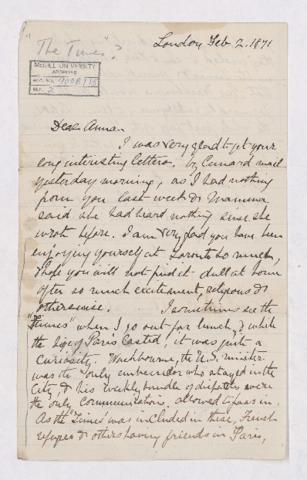 "The Times"?
London Feb 2. 1871
McGILL UNIVERSITY
ARCHIVES
ACC. NO.
REF. 2
Dear Anna
I was very glad to get your
long interesting letter, by Cunard mail
yesterday morning, as I had nothing
from you last week & Mamma
said she had heard nothing since she
wrote before. I am very glad you have been
enjoying yourself at Toronto so much,
& hope you will not find it dull at home
after so much excitement, religious &
otherwise. I sometimes see the
"Times" when I go out for lunch, & while
the siege of Paris lasted, it was quite a
curiosity. Washbourne, the U.S. minister
was the only ambassador who stayed in the
City, & his weekly bundle of dispatches were
the only communications allowed to pass in.
As the "Times" was included in these, French
refugees & others having friends in Paris,